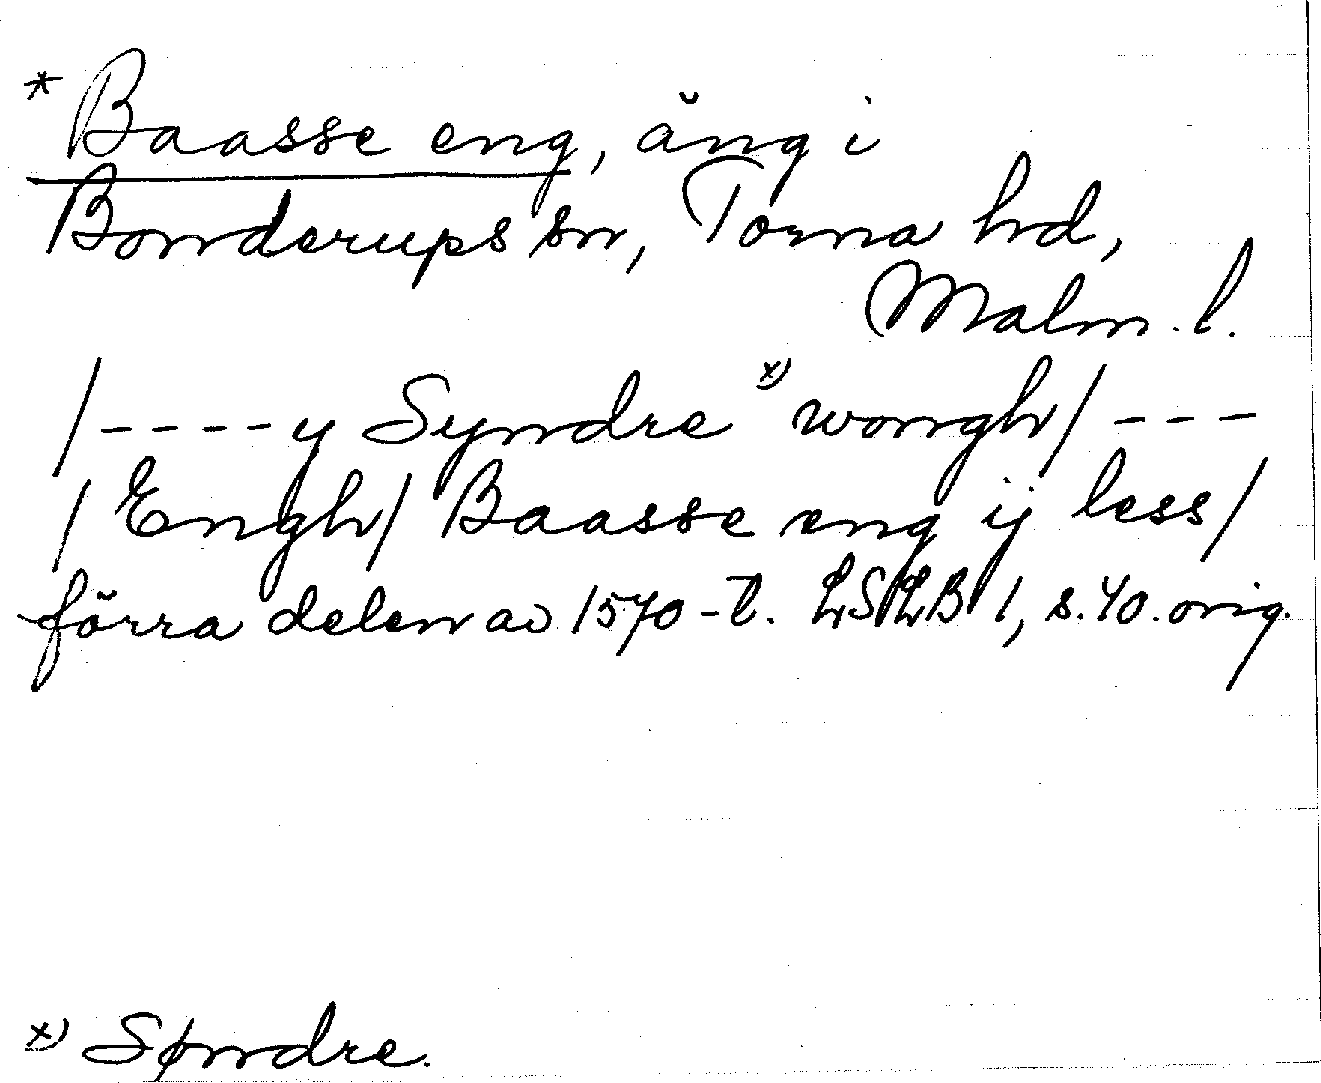 * Baasse eng, äng i
Bonderups sn, Torna hd,
Malm. l.
/----y Syndre x) wongh/ ---
/Engh/ Baasse eng ij less/
förra delen av 1570-t. LSLB 1, s. 40. orig.
x) Søndre.